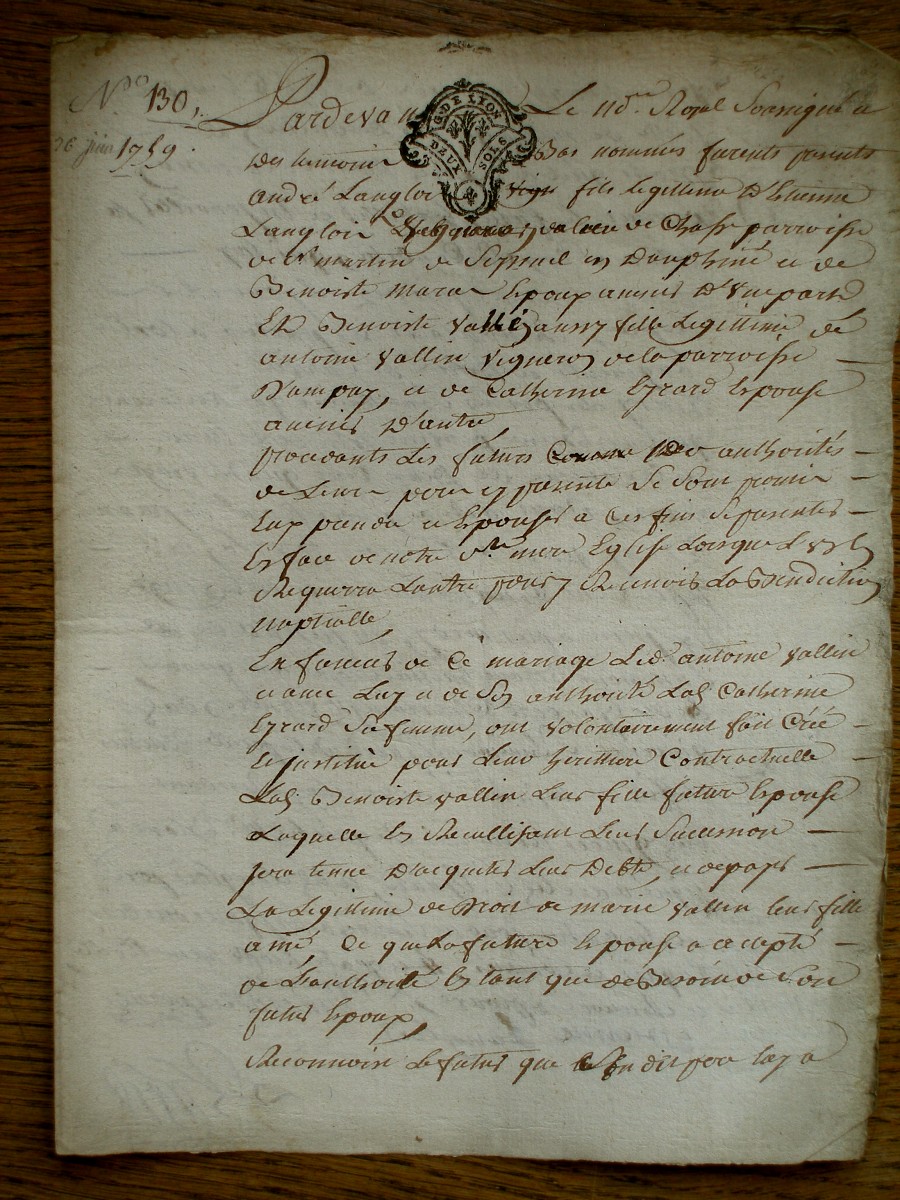 N° 130,
26 juin 1759.
G. DE LYON
DEUX SOLS
Pardevant Le nore Royal Soussigné et
Des temoins Bas nommés furent presents
André Langlois fils legittime D'Etienne
Langlois du lieu de Chasse parroisse
de st martin de en Dauphiné et de
Benoiste mariés D'Une part
Et Benoiste Vallin aussy fille Legittime de
antoine Vallin Vigneron de la parroisse
D'ampuy, et de Catherine Ezrard Epouse
D'autre,
procedants Les futurs de authorités
de Leurs parents Se Sont promis
prendre et Epouser a Ces fins Se presenter
En face de notre ste mere Eglise Lorsque L'Un
Requerra Lautre pour y Recevoir La Benediction
nuptialle,
En faveur de Ce mariage Led. antoine Vallin
et avec Luy et de Son authorité Lad. Catherine
Ezrard Sa femme, ont volontairement fait Créé
Et institué pour Leur heritiere Contractuelle
Lad. Benoiste Vallin Leur fille future Epouse
Laquelle En Recuillisant Leur Succession
sera tenue D'acquiter Leurs Debte, et de payer
La Legittime de Droit de marie Vallin leur fille
ainé, Ce que La future Epouse a accepté
de L'authorité En tant que de Besoin de Son
futur Epoux,
Reconnoit Le futur que